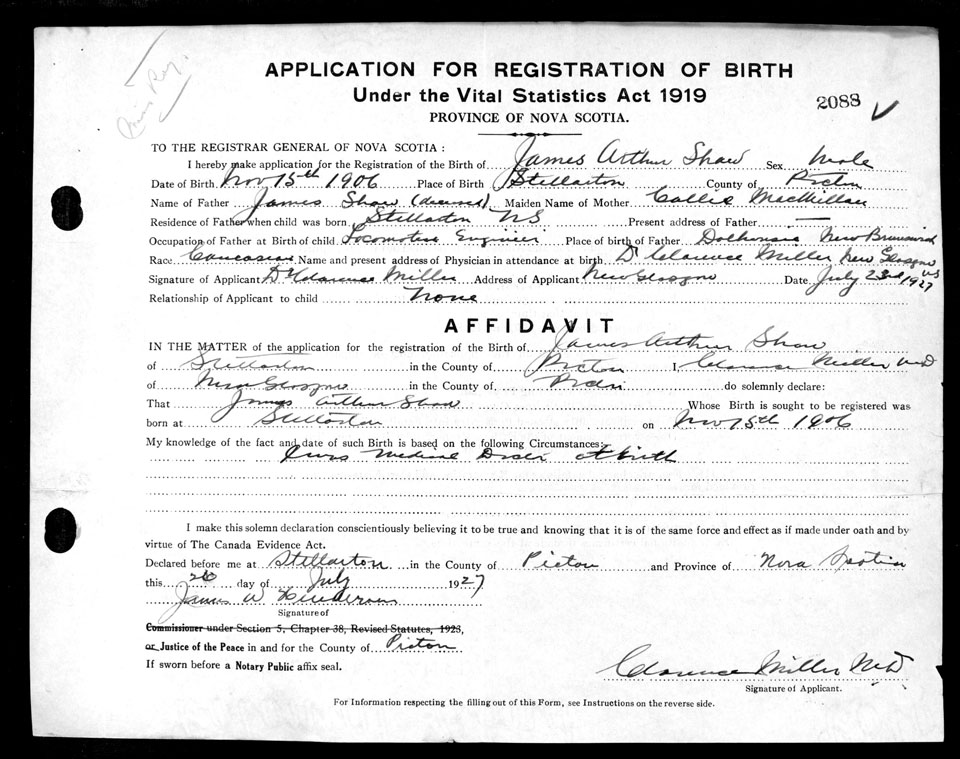 APPLICATION FOR REGISTRATION OF BIRTH
Under the Vital Statistics Act 1919
2088
PROVINCE OF NOVA SCOTIA.
TO THE REGISTRAR GENERAL OF NOVA SCOTIA:
I hereby make application for the Registration of the Birth of James Arthur Shaw Sex Male
Date of Birth Nov 15th 1906 Place of Birth Stellarton County of Pictou
Name of Father James Shaw (deceased) Maiden Name of Mother MacMillan
Residence of Father when child was born Stellarton NS Present address of Father —
Occupation of Father at Birth of child Locomotive Engineer Place of birth of Father Dalhousie New Brunswick
Race Caucasian Name and present address of Physician in attendance at birth Dr Clarence Miller New Glasgow NS
Signature of Applicant Dr Clarence Miller Address of Applicant New Glasgow Date July 23rd 1927
Relationship of Applicant to child None
AFFIDAVIT
IN THE MATTER of the application for the registration of the Birth of James Arthur Shaw
of Stellarton in the County of Pictou I Clarence Miller MD
of New Glasgow in the County of Pictou do solemnly declare:
That James Arthur Shaw Whose Birth is sought to be registered was
born at Stellarton on Nov 15th 1906
My knowledge of the fact and date of such Birth is based on the following Circumstances:
I was Medical at birth
I make this solemn declaration conscientiously believing it to be true and knowing that it is of the same force and effect as if made under oath and by
virtue of The Canada Evidence Act.
Declared before me at Stellarton in the County of Pictou and Province of Nova Scotia
this 26 day of July 1927
James W Henderson
Signature of
Commissioner under Section 5, Chapter 38, Revised Statutes, 1923,
or Justice of the Peace in and for the County of Pictou
If sworn before a Notary Public affix seal.
Clarence Miller MD
Signature of Applicant.
For Information respecting the filling out of this Form, see Instructions on the reverse side.